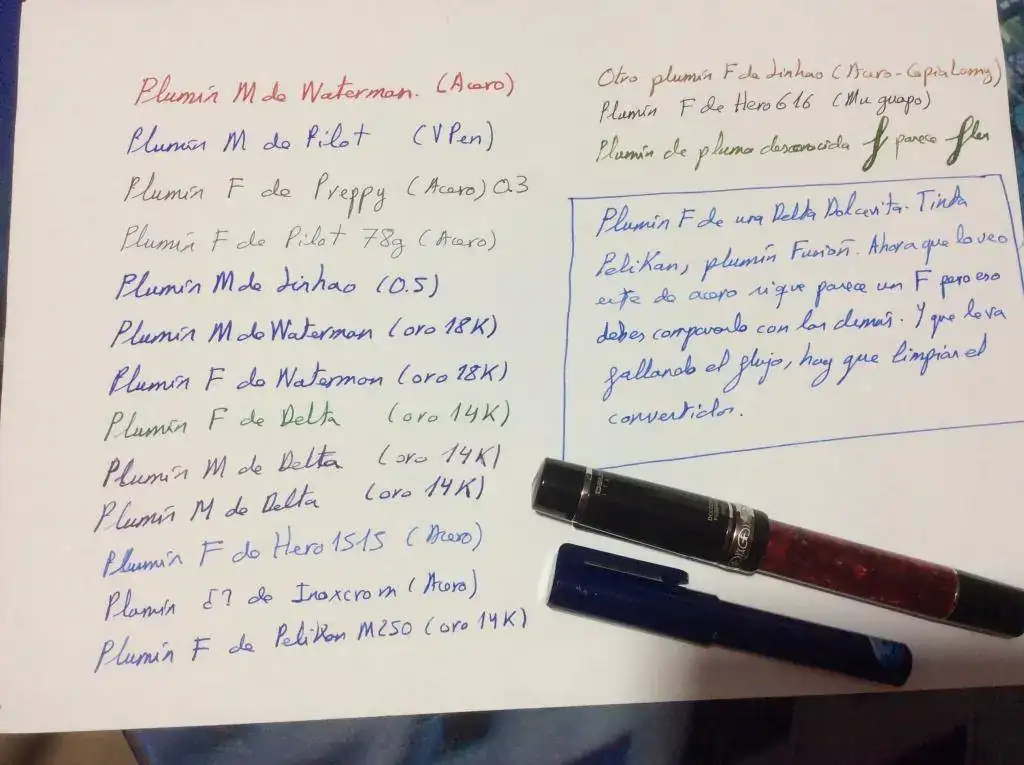 Plumín M de Waterman. (Acero)
Plumín M de Pilot (VPen)
Plumín F de Preppy (Acero) 0.3
Plumín F de Pilot 78g (Acero)
Plumín M de Jinhao (0.5)
Plumín M de Waterman (oro 18K)
Plumín F de Waterman (oro 18K)
Plumín F de Delta (oro 14K)
Plumín M de Delta (oro 14K)
Plumín M de Delta (oro 14K)
Plumín F de Hero 1515 (Acero)
Plumín ¿? de Inoxcrom (Acero)
Plumín F de Pelikan M250 (oro 14K)
Otro plumín F de Jinhao (Acero-Copia Lamy)
Plumín F de Hero 616 (Mu guapo)
Plumín de pluma desconocida f parece flex
Plumín F de una Delta Dolcevita. Tinta
Pelikan, plumín Fusion. Ahora que lo veo
este de acero si que parece un F pero eso
debes compararlo con los demás. Y que le va
fallando el flujo, hay que limpiar el
convertidor.